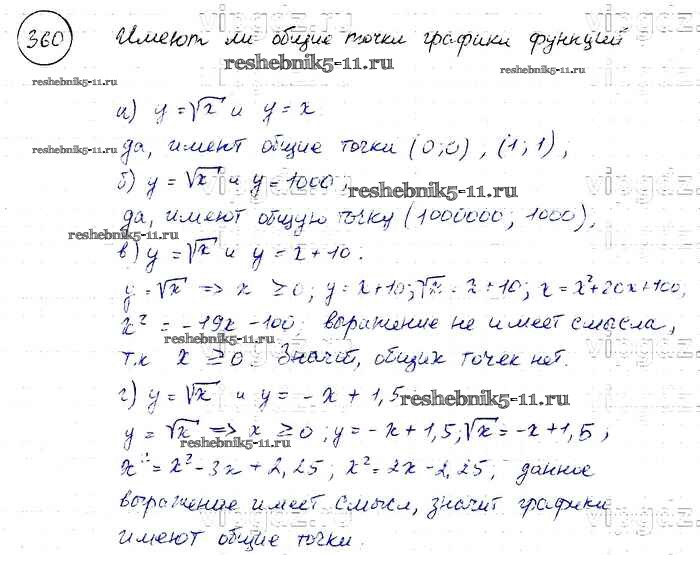 360 Имеют ли общие точки графики функций
reshebnik5-11.ru
reshebnik5-11.ru reshebnik5-11.ru
а) y = √x и y = x
reshebnik5-11.ru да, имеют общие точки (0;0), (1;1);
б) y = √x и y = 1000;
reshebnik5-11.ru
да, имеют общую точку (1000000; 1000);
reshebnik5-11.ru
в) y = √x и y = x + 10:
y = √x => x ≥ 0; y = x + 10; √x = x + 10; x = x² + 20x + 100;
x² = -19x - 100; выражение не имеет смысла,
reshebnik5-11.ru
т.к x ≥ 0. Значит, общих точек нет.
г) y = √x и y = - x + 1,5 reshebnik5-11.ru
y = √x => x ≥ 0; y = - x + 1,5; √x = - x + 1,5;
reshebnik5-11.ru
= x² - 3x + 2,25; x² = 2x - 2,25; данное
выражение имеет смысл, значит графики
reshebnik5-11.ru
имеют общие точки.